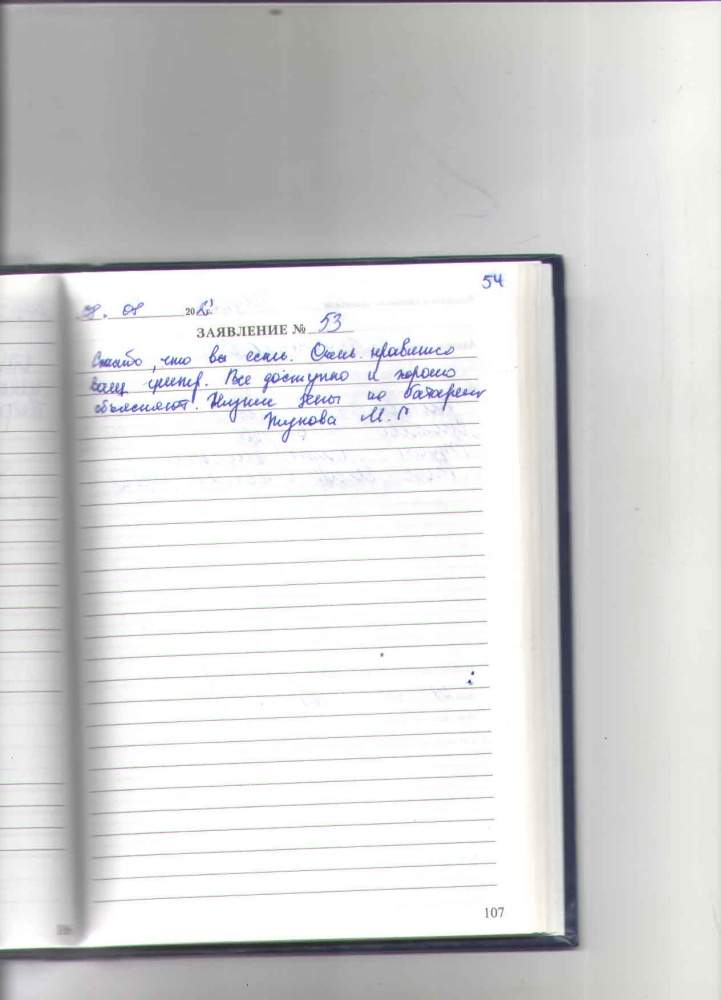 54
08. 08 2021г.
ЗАЯВЛЕНИЕ № 53
Спасибо, что вы есть. Очень нравится
ваш центр. Все доступно и хорошо
объясняют. Низкие цены на батарейки
Жукова М. С
107